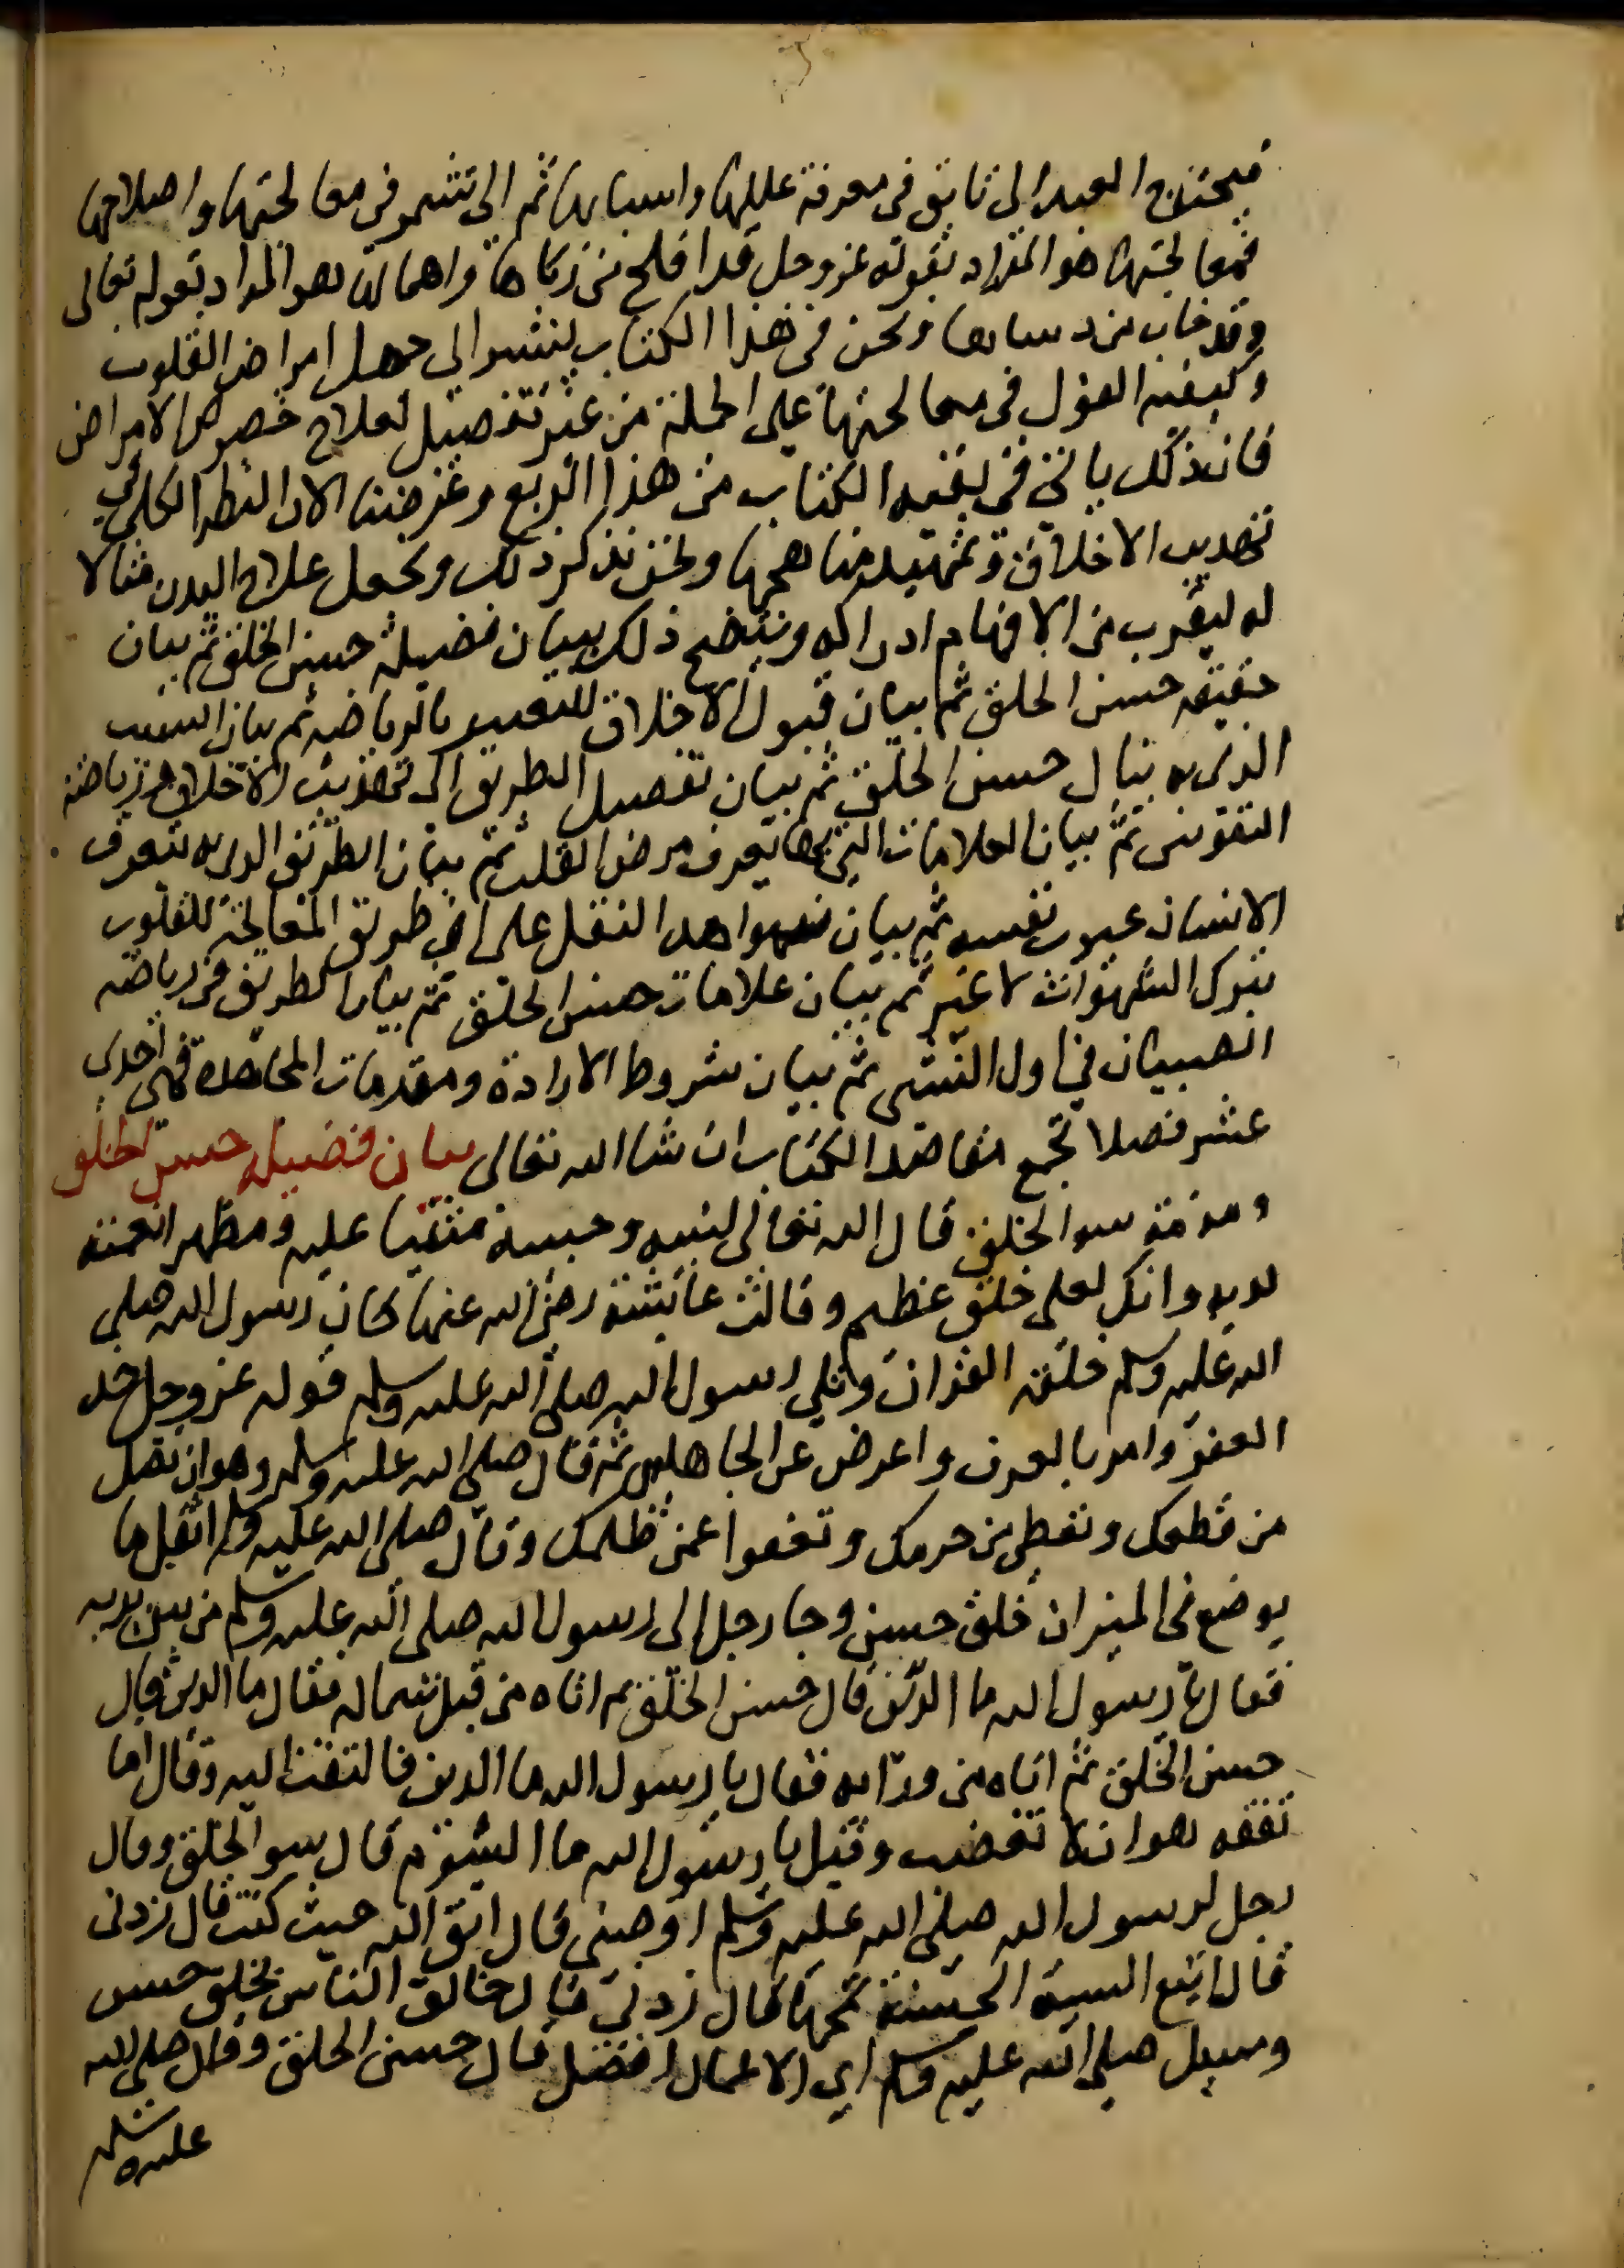 فيحتاج العبد الى تانق فى معرفة عللها واسبابها ثم الى تشمر فى معالجتها واصلاحها
فمعالجتها هو المراد بقوله عز وجل قد افلح من زكاها واهمالها هو المراد بقوله تعالى
وقد خاب من دساها ونحن فى هذا الكتاب نشير الى جمل امراض القلوب
وكيفيه القول فى معالجتها على الجملة من غير تفصيل لعلاج خصوص الامراض
فان ذلك ياتى فى بقيه الكتاب من هذا الربع وغرضنا الان النظر الكلى فى
تهذيب الاخلاق وتمهيد مناهجها ونحن نذكر ذلك ونجعل علاج البدن مثالا
له ليقرب من الافهام ادراكه ويتضح ذلك ببيان فضيلة حسن الخلق ثم بيان
حقيقه حسن الخلق ثم بيان قبول الاخلاق للتغيير بالرياضه ثم بيان السبب
الذى به ينال حسن الخلق ثم بيان تفصيل الطريق الى تهذيب الاخلاق ورياضة
النفوس ثم بيان العلامات التى بها يعرف مرض القلب ثم بيان الطريق الذى به يتعرف
الانسان عيوب نفسه ثم بيان شواهد النقل على ان طريق المعالجة للقلوب
بترك الشهوات لا غير ثم بيان علامات حسن الخلق ثم بيان الطريق فى رياضة
الصبيان في اول النشى ثم بيان شروط الارادة ومقدمات المجاهدة فهى احدى
عشر فصلا تجمع مقاصد الكتاب ان شا الله تعالى بيان فضيله حسن الخلق
ومذمة سو الخلق قال الله تعالى لنبيه وحبيبه مثنيا عليه ومظهرا نعمته
لديه وانك لعلى خلق عظيم وقالت عائشة رضى الله عنها كان رسول الله صلى
الله عليه وسلم خلقه القران وتلى رسول الله صلى الله عليه وسلم قوله عز وجل خذ
العفو وامر بالعرف واعرض عن الجاهلين ثم قال صلى الله عليه وسلم وهو ان تصل
من قطعك وتعطى من حرمك وتعفوا عمن ظلمك وقال صلى الله عليه وسلم اثقل ما
يوضع فى الميزان خلق حسن وجا رجل الى رسول الله صلى الله عليه وسلم من بين يديه
فقال يا رسول الله ما الدين قال حسن الخلق ثم اتاه من قبل شماله فقال ما الدين قال
حسن الخلق ثم اتاه من ورائه فقال يا رسول الله ما الدين فالتفت اليه وقال اما
تفقه هو ان لا تغضب وقيل يا رسول الله ما الشوم قال سو الخلق وقال
رجل لرسول الله صلى الله عليه وسلم اوصنى قال اتق الله حيث كنت قال زدنى
قال اتبع السيئة الحسنة تمحها قال زدنى قال خالق الناس بخلق حسن
وسيل صلى الله عليه وسلم اي الاعمال افضل قال حسن الخلق وقال صلى الله
عليه وسلم